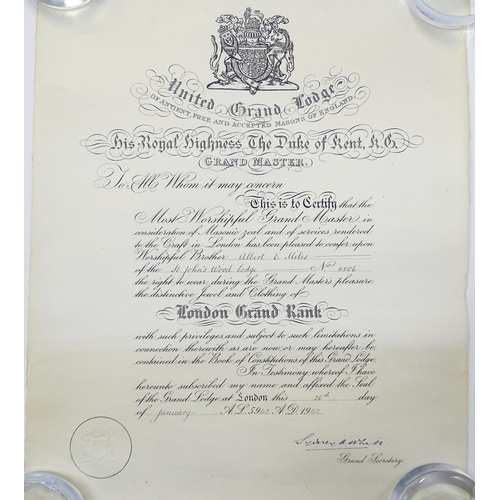 United Grand Lodge
OF ANTIENT, FREE AND ACCEPTED MASONS OF ENGLAND.
His Royal Highness The Duke of Kent, K.G.
(GRAND MASTER.)
To All Whom it may concern
This is to Certify that the
Most Worshipful Grand Master in
consideration of Masonic zeal and of services rendered
to the Craft in London has been pleased to confer upon
Worshipful Brother Albert E. Miles
of the St John's Wood Lodge No. 4806
the right to wear during the Grand Master's pleasure
the distinctive Jewel and Clothing of
London Grand Rank
with such privileges and subject to such limitations in
connection therewith as are now or may hereafter be
contained in the Book of Constitutions of this Grand Lodge.
In Testimony whereof I have
hereunto subscribed my name and affixed the Seal
of the Grand Lodge at London this 26th day
of January A.L. 5942 A.D. 1942
Sydney A. White
Grand Secretary.